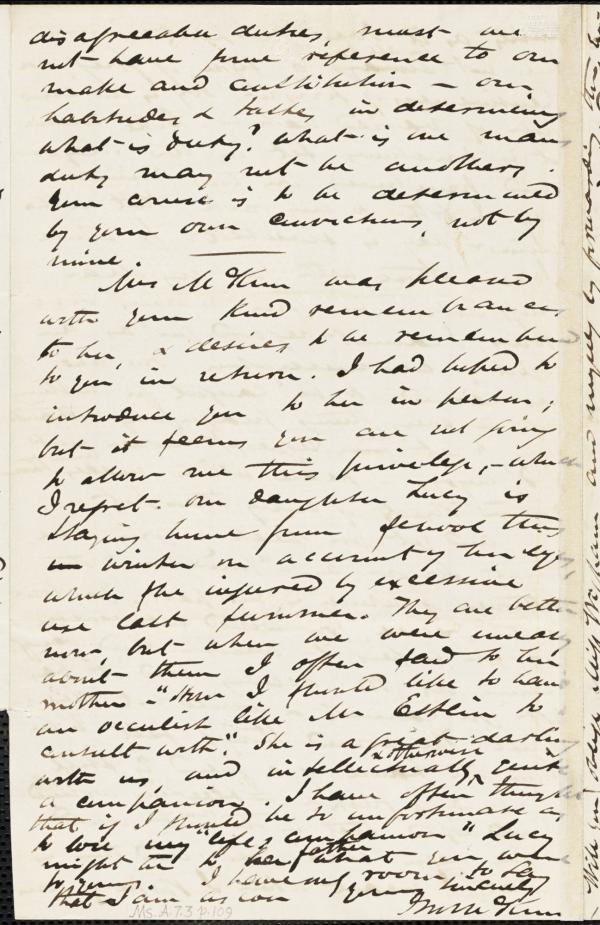 disagreeable duties, must we
not have some reference to our
make and constitution — our
habitudes & tastes, in determining
what is duty? What is one mans
duty may not be anothers.
Your course is to be determined
by your own convictions, not by
mine.
Mrs McKim was pleased
with your kind remembrances
to her, & desires to be remembered
to you in return. I had hoped to
introduce you to her in person;
but it seems you are not going
to allow me this privilege, — which
I regret. Our daughter Lucy is
staying home from school this
winter on account of her eyes,
which she injured by excessive
use last summer. They are better
now, but when we were uneasy
about them I often said to her
mother — "How I should like to have
an occulist like Mr Estlin to
consult with". She is a great darling
with us, and intellectually & otherwise quite
a companion. I have often thought
that if I should be so unfortunate as
to lose my "life's companion" Lucy
might be to her father what you were
to yours. I have only room to say
that I am as ever yours sincerely
J M McKim
Ms. A.7.3 p.109
Will you oblige Miss Wigham and myself by forwarding the